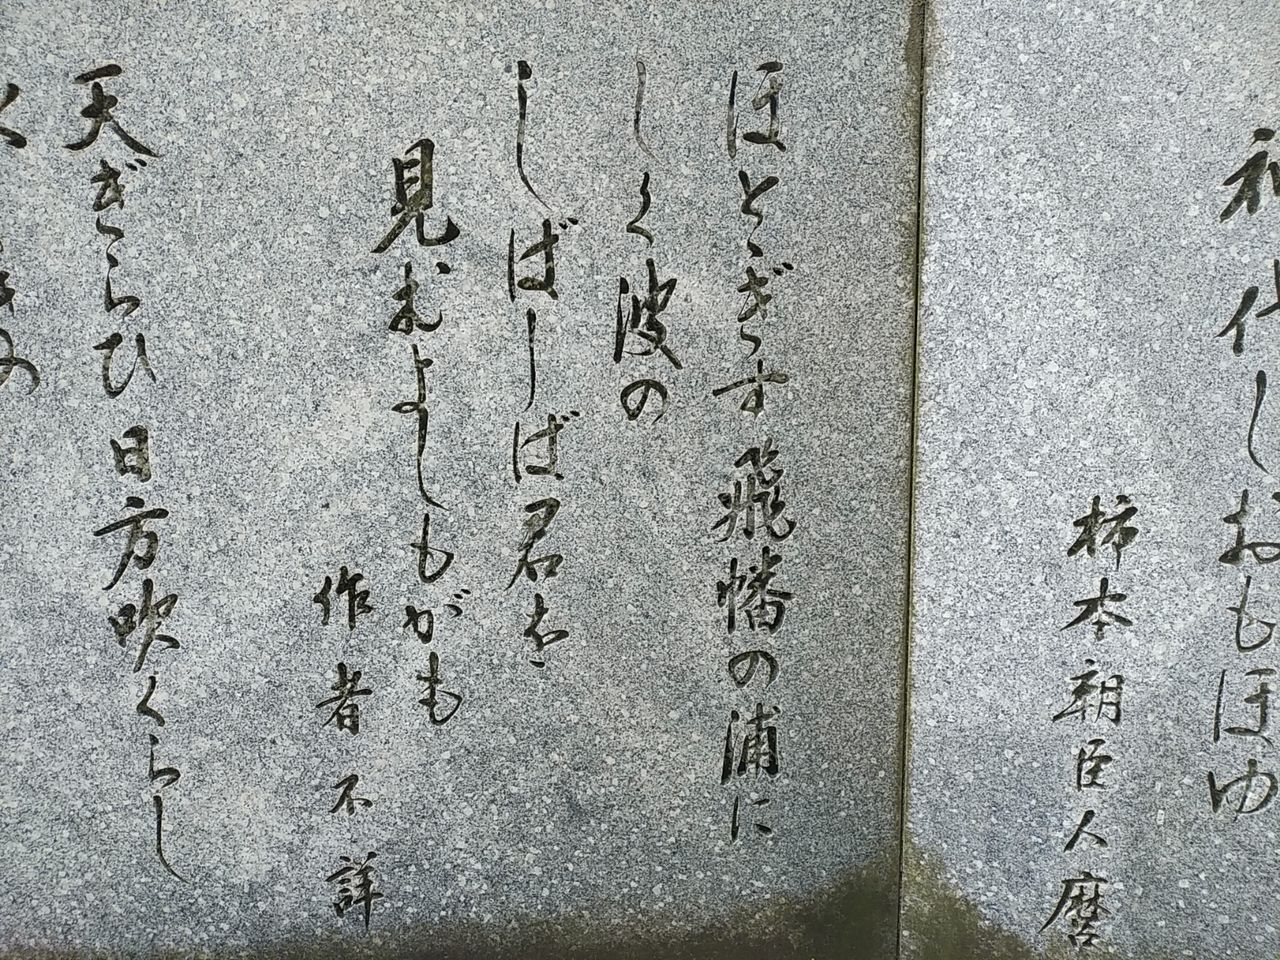 神代しおもほゆ
柿本朝臣人麿
ほとゝぎす飛幡の浦に
しく波の
しばしばば君を
見むよしもがも
作者不詳
天ぎらひ日方吹くらし